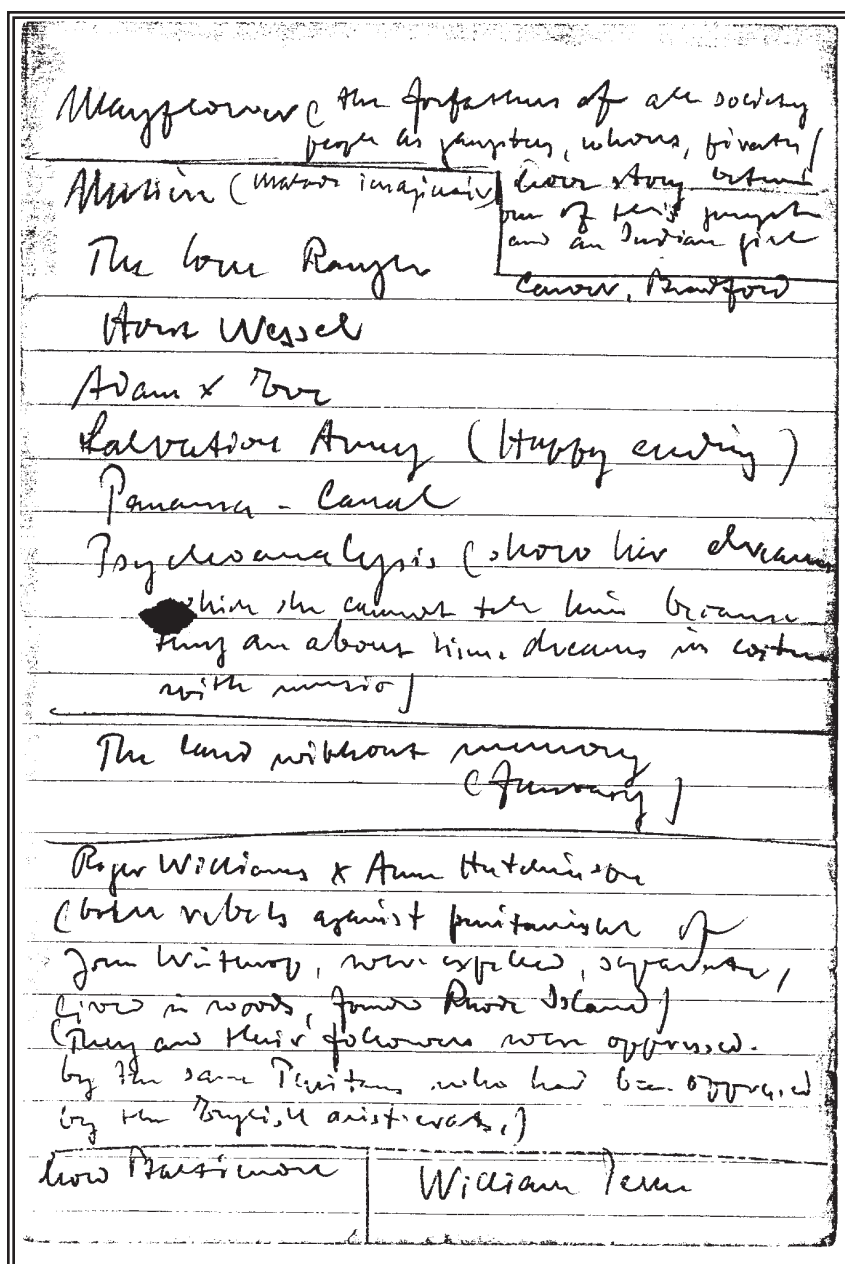 Mayflower ( the forfathers of all society
people as gangsters, whores, pirates)
love story between
one of this gangsters
and an Indian girl
Carver, Bradford
(malade imaginaire)
The lone Ranger
Horst Wessel
Adam & Eve
Salvation Army (Happy ending)
Panama - Canal
Psychoanalysis (show her dreams
which she cannot tell him because
they are about him. dreams in costume
with music)
The land without memory
(Germany)
Roger Williams & Ann Hutchinson
(both rebels against puritanism of
John Winthrop, were expelled, separate,
lived in woods, found Rhode Island)
(They and their followers were oppressed.
by the same Puritans who had been oppressed
by the English aristocrats.)
Lord Baltimore
William Penn